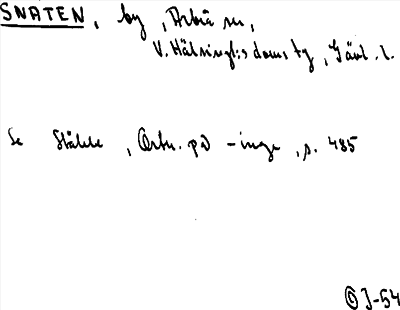 SNATEN, by, Arbrå sn,
V. Hälsinglds domstg, Gävl. l.
Se Ståhle, Ortn. på -inge, s. 485
OJ-54